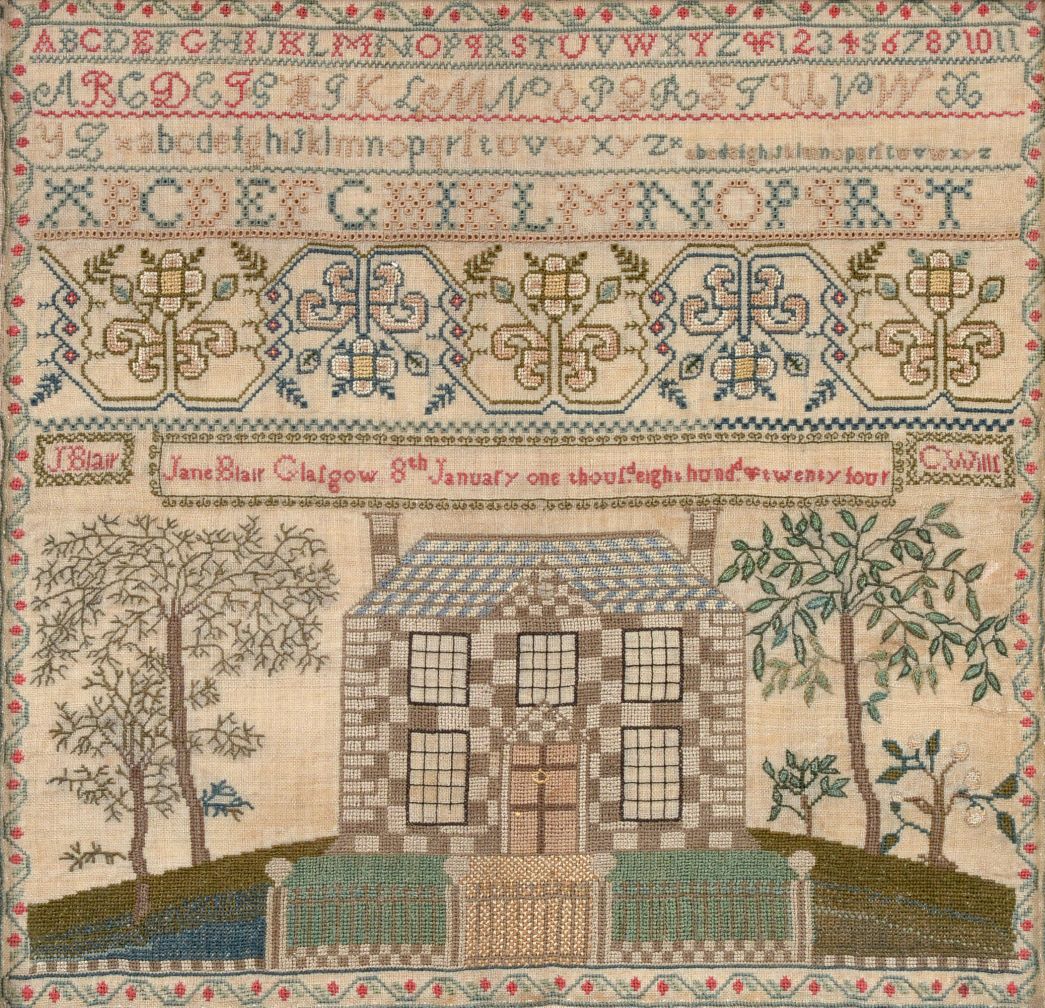 ABCDEFGHIJKLMNOPQRSTUVWXYZ 1234567891011
ABCDEFGHIKLMNOPQRSTUVWX
YZ abcdefghijklmnopqrſtuvwxyz abcdefghijklmnopqrſtuvwxyz
ABCDEFGHIKLMNOPQRST
J.Blair Jane Blair Glaſgow 8th January one thouſ.d eight hund.d twenty four C.Will